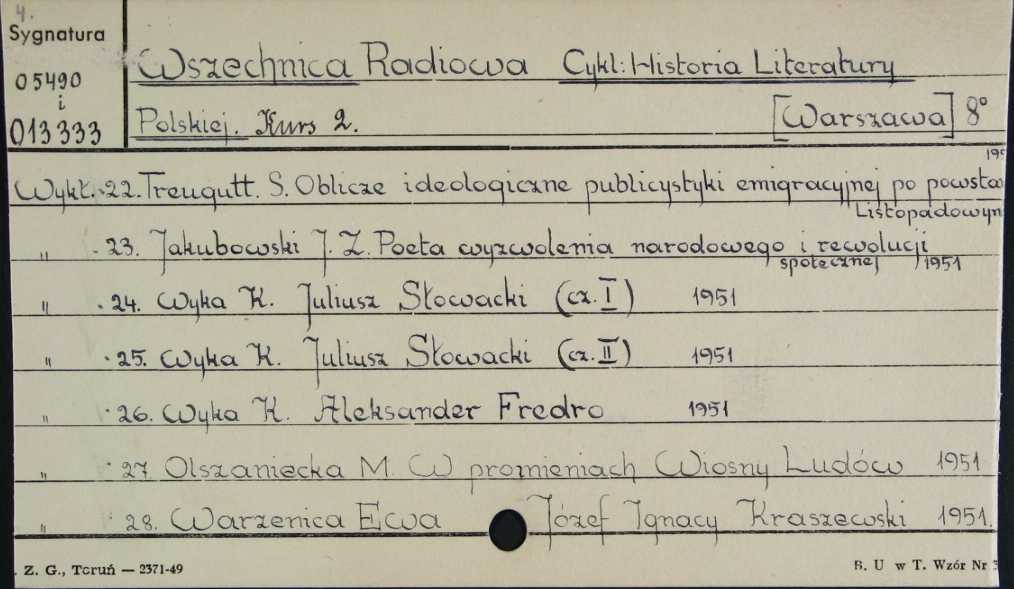 4.
Sygnatura
05490
i
013333
Wszechnica Radiowa Cykl: Historia Literatury
Polskiej. Kurs 2. [Warszawa] 8°
Wykł. 22. Treugutt. S. Oblicze ideologiczne publicystyki emigracyjnej po powsta
Listopadowyn
" 23. Jakubowski J. Z. Poeta wyzwolenia narodowego i rewolucji
społecznej 1951
" 24. Wyka K. Juliusz Słowacki (cz. I) 1951
" 25. Wyka K. Juliusz Słowacki (cz. II) 1951
" 26. Wyka K. Aleksander Fredro 1951
" 27 Olszaniecka M. W promieniach Wiosny Ludów 1951
" 28. Warzenica Ewa Józef Ignacy Kraszewski 1951.
Z. G., Toruń — 2371-49 B. U w T. Wzór Nr